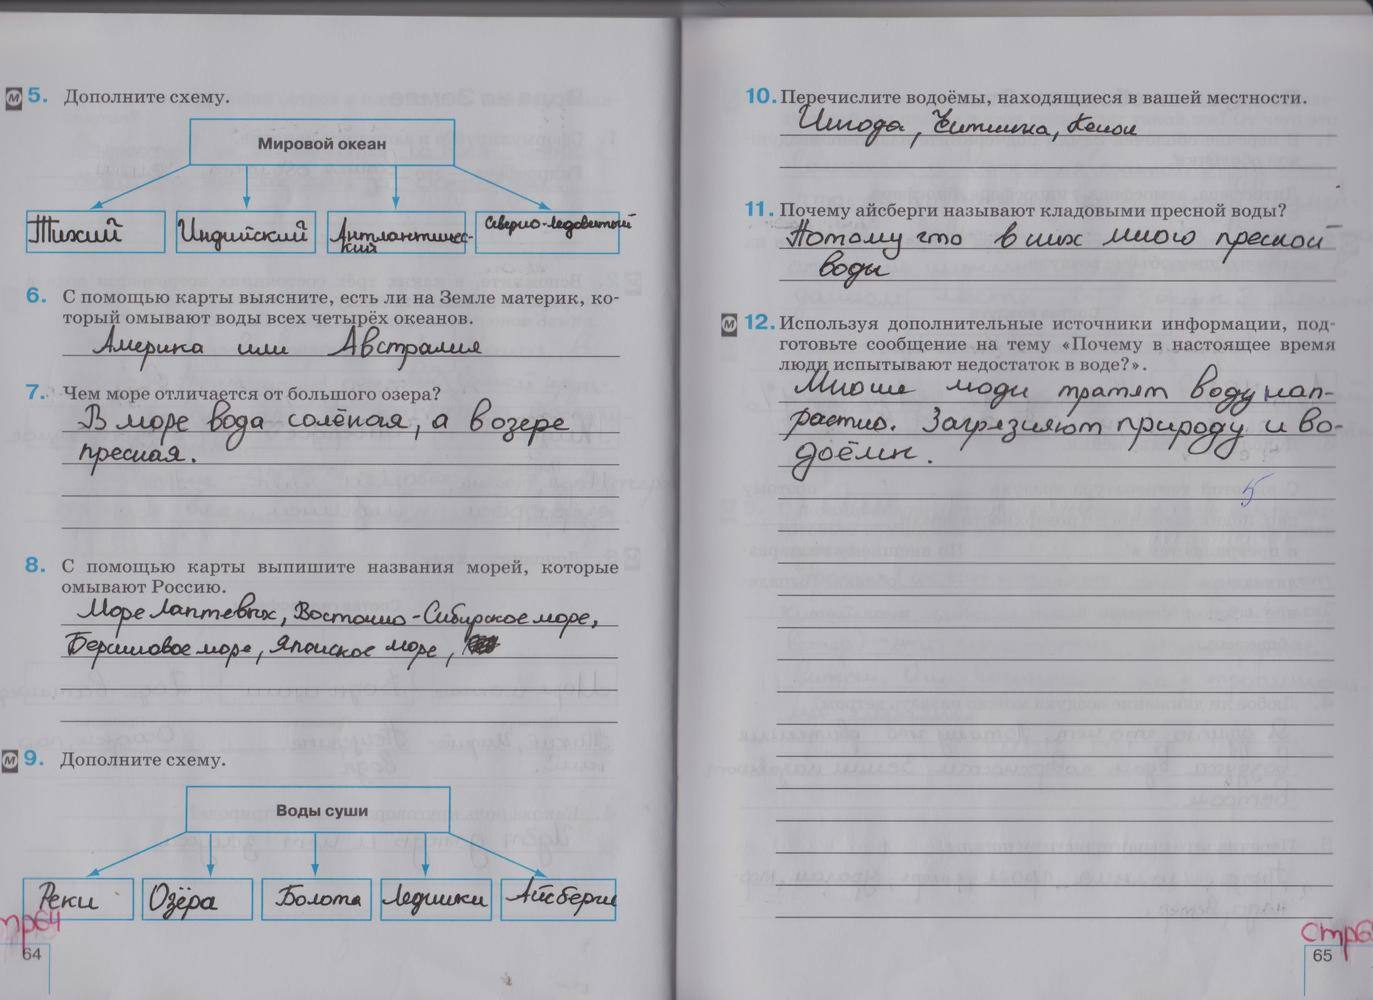 5. Дополните схему.
Мировой океан
Тихий Индийский Антлантичес- Северно-ледовитый
кий
6. С помощью карты выясните, есть ли на Земле материк, ко-
торый омывают воды всех четырёх океанов.
Америка или Австралия
7. Чем море отличается от большого озера?
В море вода солёная, а в озере
пресная.
8. С помощью карты выпишите названия морей, которые
омывают Россию.
Море Лаптевых, Восточно-Сибирское море,
Беринговое море, Японское море,
9. Дополните схему.
Воды суши
Реки Озёра Болота Ледники Айсберги
стр64
64
10. Перечислите водоёмы, находящиеся в вашей местности.
Ингода, Читинка, Кенон
11. Почему айсберги называют кладовыми пресной воды?
Потому что в них много пресной
воды
12. Используя дополнительные источники информации, под-
готовьте сообщение на тему «Почему в настоящее время
люди испытывают недостаток в воде?».
Многие люди тратят воду нап-
растно. Загрязняют природу и во-
доёмы.
5
стр6
65